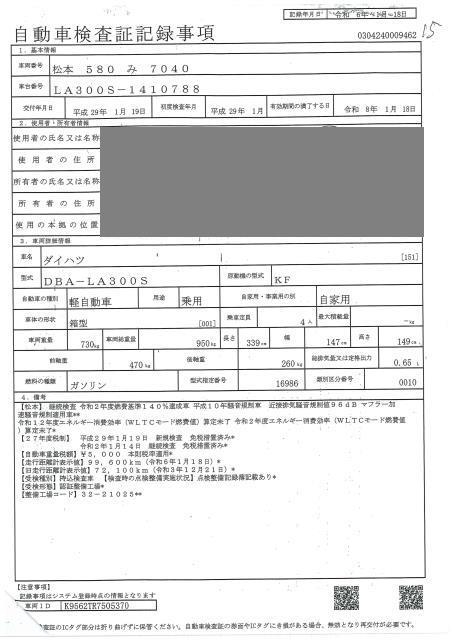 記録年月日 令和 6年 1月 18日
自動車検査証記録事項
0304240009462 15
1．基本情報
車両番号 松本 580 み 7040
車台番号 LA300S-1410788
交付年月日 平成 29年 1月 19日 初度検査年月 平成 29年 1月 有効期間の満了する日 令和 8年 1月 18日
2．使用者・所有者情報
使用者の氏名又は名称
使用者の住所
所有者の氏名又は名称
所有者の住所
使用の本拠の位置
3．車両詳細情報
車名 ダイハツ [151]
型式 DBA-LA300S 原動機の型式 KF
自動車の種別 軽自動車 用途 乗用 自家用・事業用の別 自家用
車体の形状 箱型 [001] 乗車定員 4人 最大積載量 -kg
車両重量 730kg 車両総重量 950kg 長さ 339cm 幅 147cm 高さ 149cm
前軸重 470kg 後軸重 260kg 総排気量又は定格出力 0.65 L
燃料の種類 ガソリン 型式指定番号 16986 類別区分番号 0010
4．備考
【松本】 継続検査 令和2年度燃費基準140%達成車 平成10年騒音規制車 近接排気騒音規制値96dB マフラー加
速騒音規制適用車**
令和12年度エネルギー消費効率（WLTCモード燃費値）算定未了 令和2年度エネルギー消費効率（WLTCモード燃費値
）算定未了*
【27年度税制】 平成29年1月19日 新規検査 免税措置済み*
令和2年1月14日 継続検査 免税措置済み*
【自動車重量税額】¥5,000 本則税率適用*
【走行距離計表示値】99,600km（令和6年1月18日）*
【旧走行距離計表示値】72,100km（令和3年12月21日）*
【受検種別】持込検査車 【検査時の点検整備実施状況】点検整備記録簿記載あり*
【受検形態】認証整備工場*
【整備工場コード】32-21025**
【注意事項】
記録事項はシステム登録時点の情報となります
車両ID K9562TR7505370
検査証のICタグ部分は折り曲げずに保管ください。自動車検査証の券面やICタグに き損がある場合、無効となり再交付が必要です。